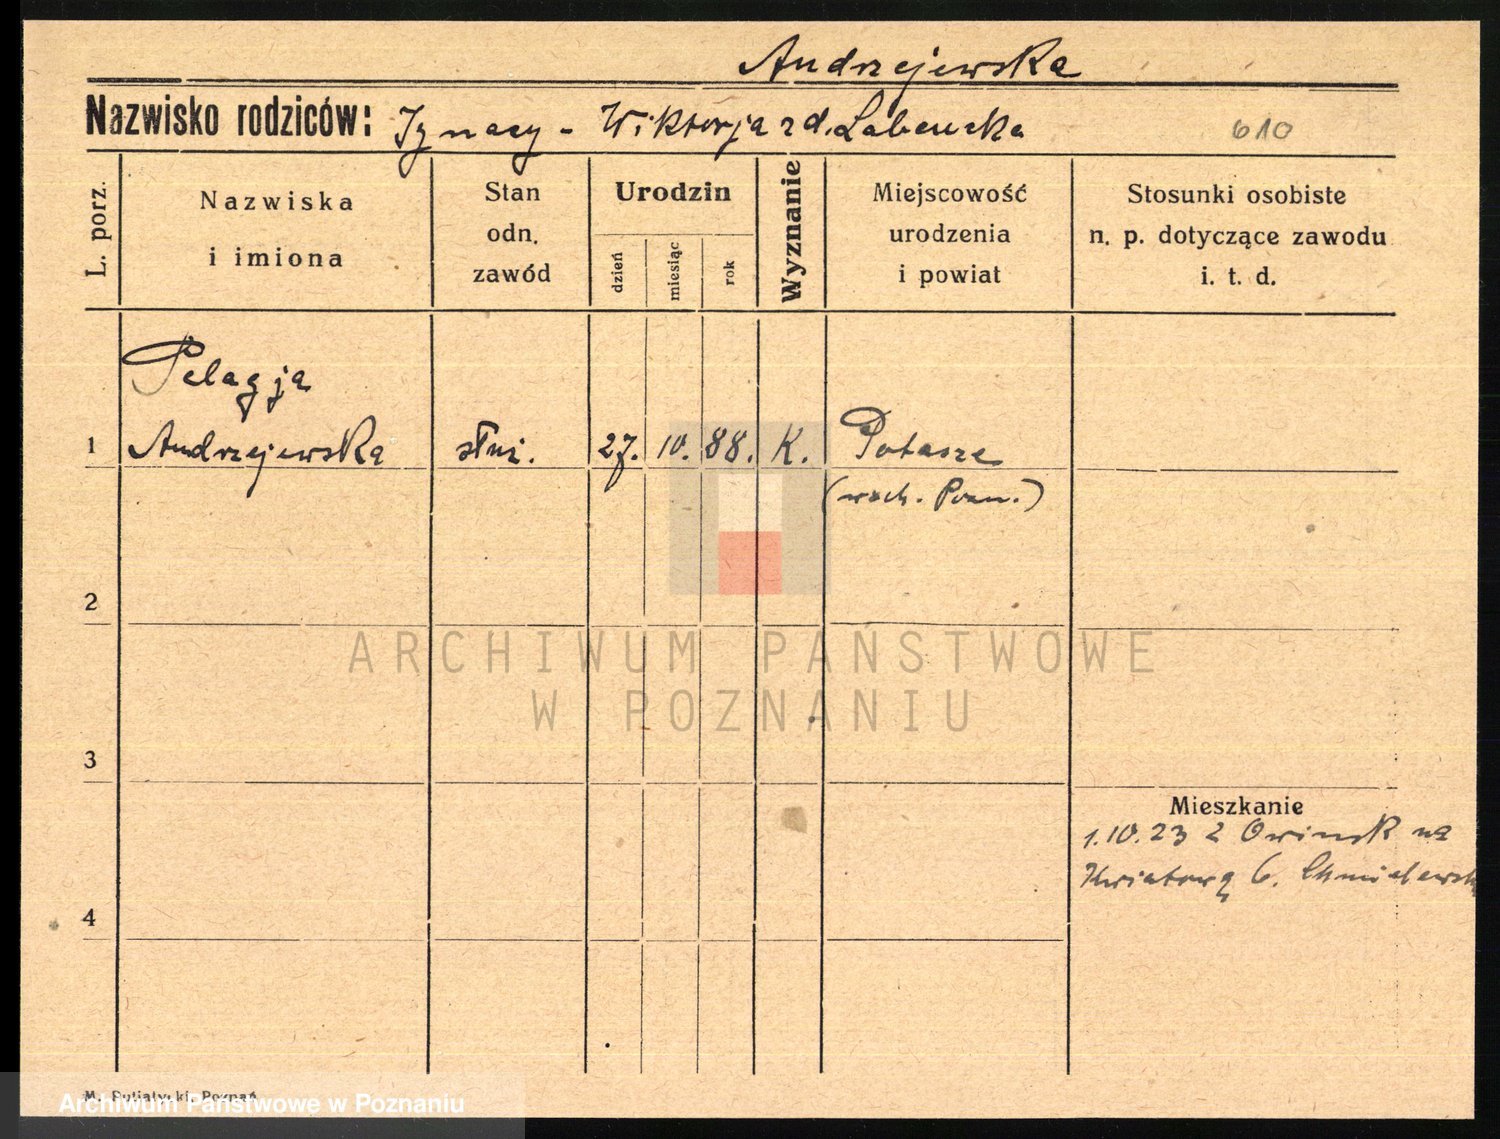 Andrzejewska
Nazwisko rodziców: Ignacy - Wiktorja z d. Labencka
610
L. porz.
Nazwiska
i imiona
Stan
odn.
zawód
Urodzin
dzień
miesiąc
rok
Wyznanie
Miejscowość
urodzenia
i powiat
Stosunki osobiste
n. p. dotyczące zawodu
i. t. d.
Pelagja
1 Andrzejewska służ. 27. 10. 88. K. Potasze
(wsch. Pozn.)
2
ARCHIWUM PAŃSTWOWE
W POZNANIU
3
Mieszkanie
1.10.23 z Owinsk na
Kwiatową 6. Chmielewsk
4
M. Putiatycki, Poznań
Archiwum Państwowe w Poznaniu